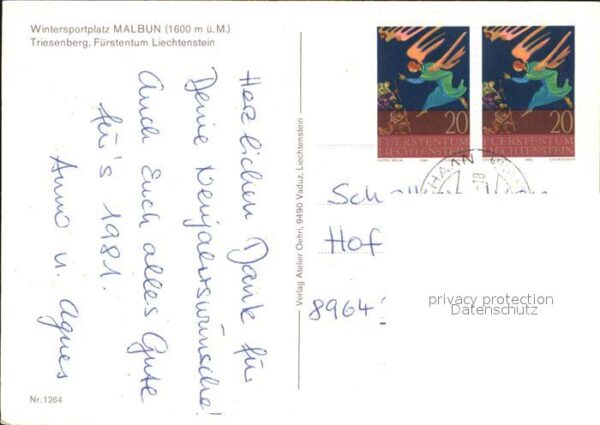 Wintersportplatz MALBUN (1600 m ü.M.)
Triesenberg, Fürstentum Liechtenstein
Herzlichen Dank für
Deine Neujahrswünsche!
Auch Euch alles Gute
für's 1981.
Anno u. Agnes
Nr. 1264
Verlag Atelier Oehri, 9490 Vaduz, Liechtenstein
20
FÜRSTENTUM
LIECHTENSTEIN
20
FÜRSTENTUM
LIECHTENSTEIN
HAAN
Hof
8964
privacy protection
Datenschutz